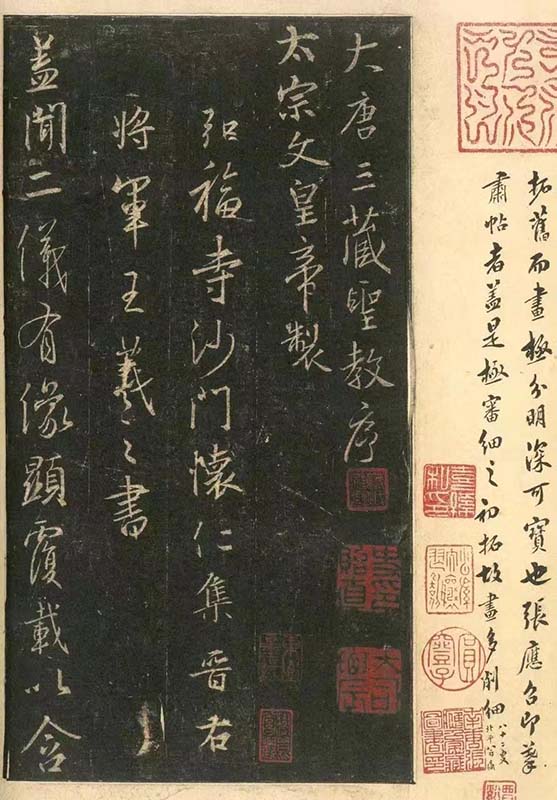 拓舊而畫極分明深可寶也張應召即摹
肅帖者蓋是極審細之初拓故畫多削細
大唐三藏聖教序
太宗文皇帝製
弘福寺沙門懷仁集晉右
將軍王羲之書
蓋聞二儀有像顯覆載以含